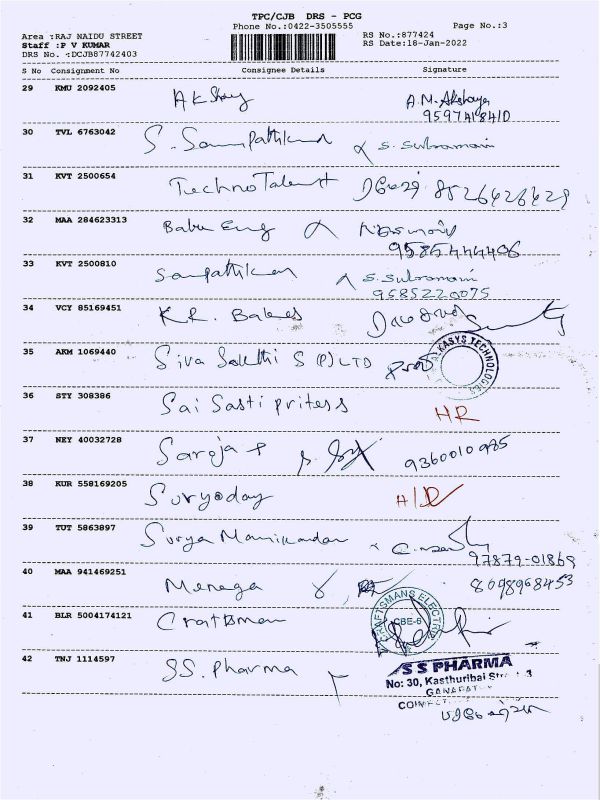 TPC/CJB DRS - PCG
Phone No.:0422-3505555 Page No.:3
Area :RAJ NAIDU STREET RS No.:877424
Staff :P V KUMAR RS Date:18-Jan-2022
DRS No. :DCJB87742403
S No Consignment No Consignee Details Signature
29 KMU 2092405 A.M. Akshaya
30 TVL 6763042 S. Subramani
31 KVT 2500654 Techno Talent 8526426429
32 MAA 284623313 Babu Eng
9585444406
33 KVT 2500810 S. Subramani
9585220075
34 VCY 85169451 K.R. Bakes
35 AKM 1069440 Siva Sakthi S (P) LTD
KASYS TECHNOLOGIES
36 STY 308386 HR
37 NEY 40032728 Saroja 9360010985
38 KUR 558169205 Suryoday
39 TUT 5863897 Surya Manikandan
97879-01869
40 MAA 941469251 Menaga 8098968453
41 BLR 5004174121 CBE-6
42 TNJ 1114597 SS. Pharma
S S PHARMA
No: 30, Kasthuribai